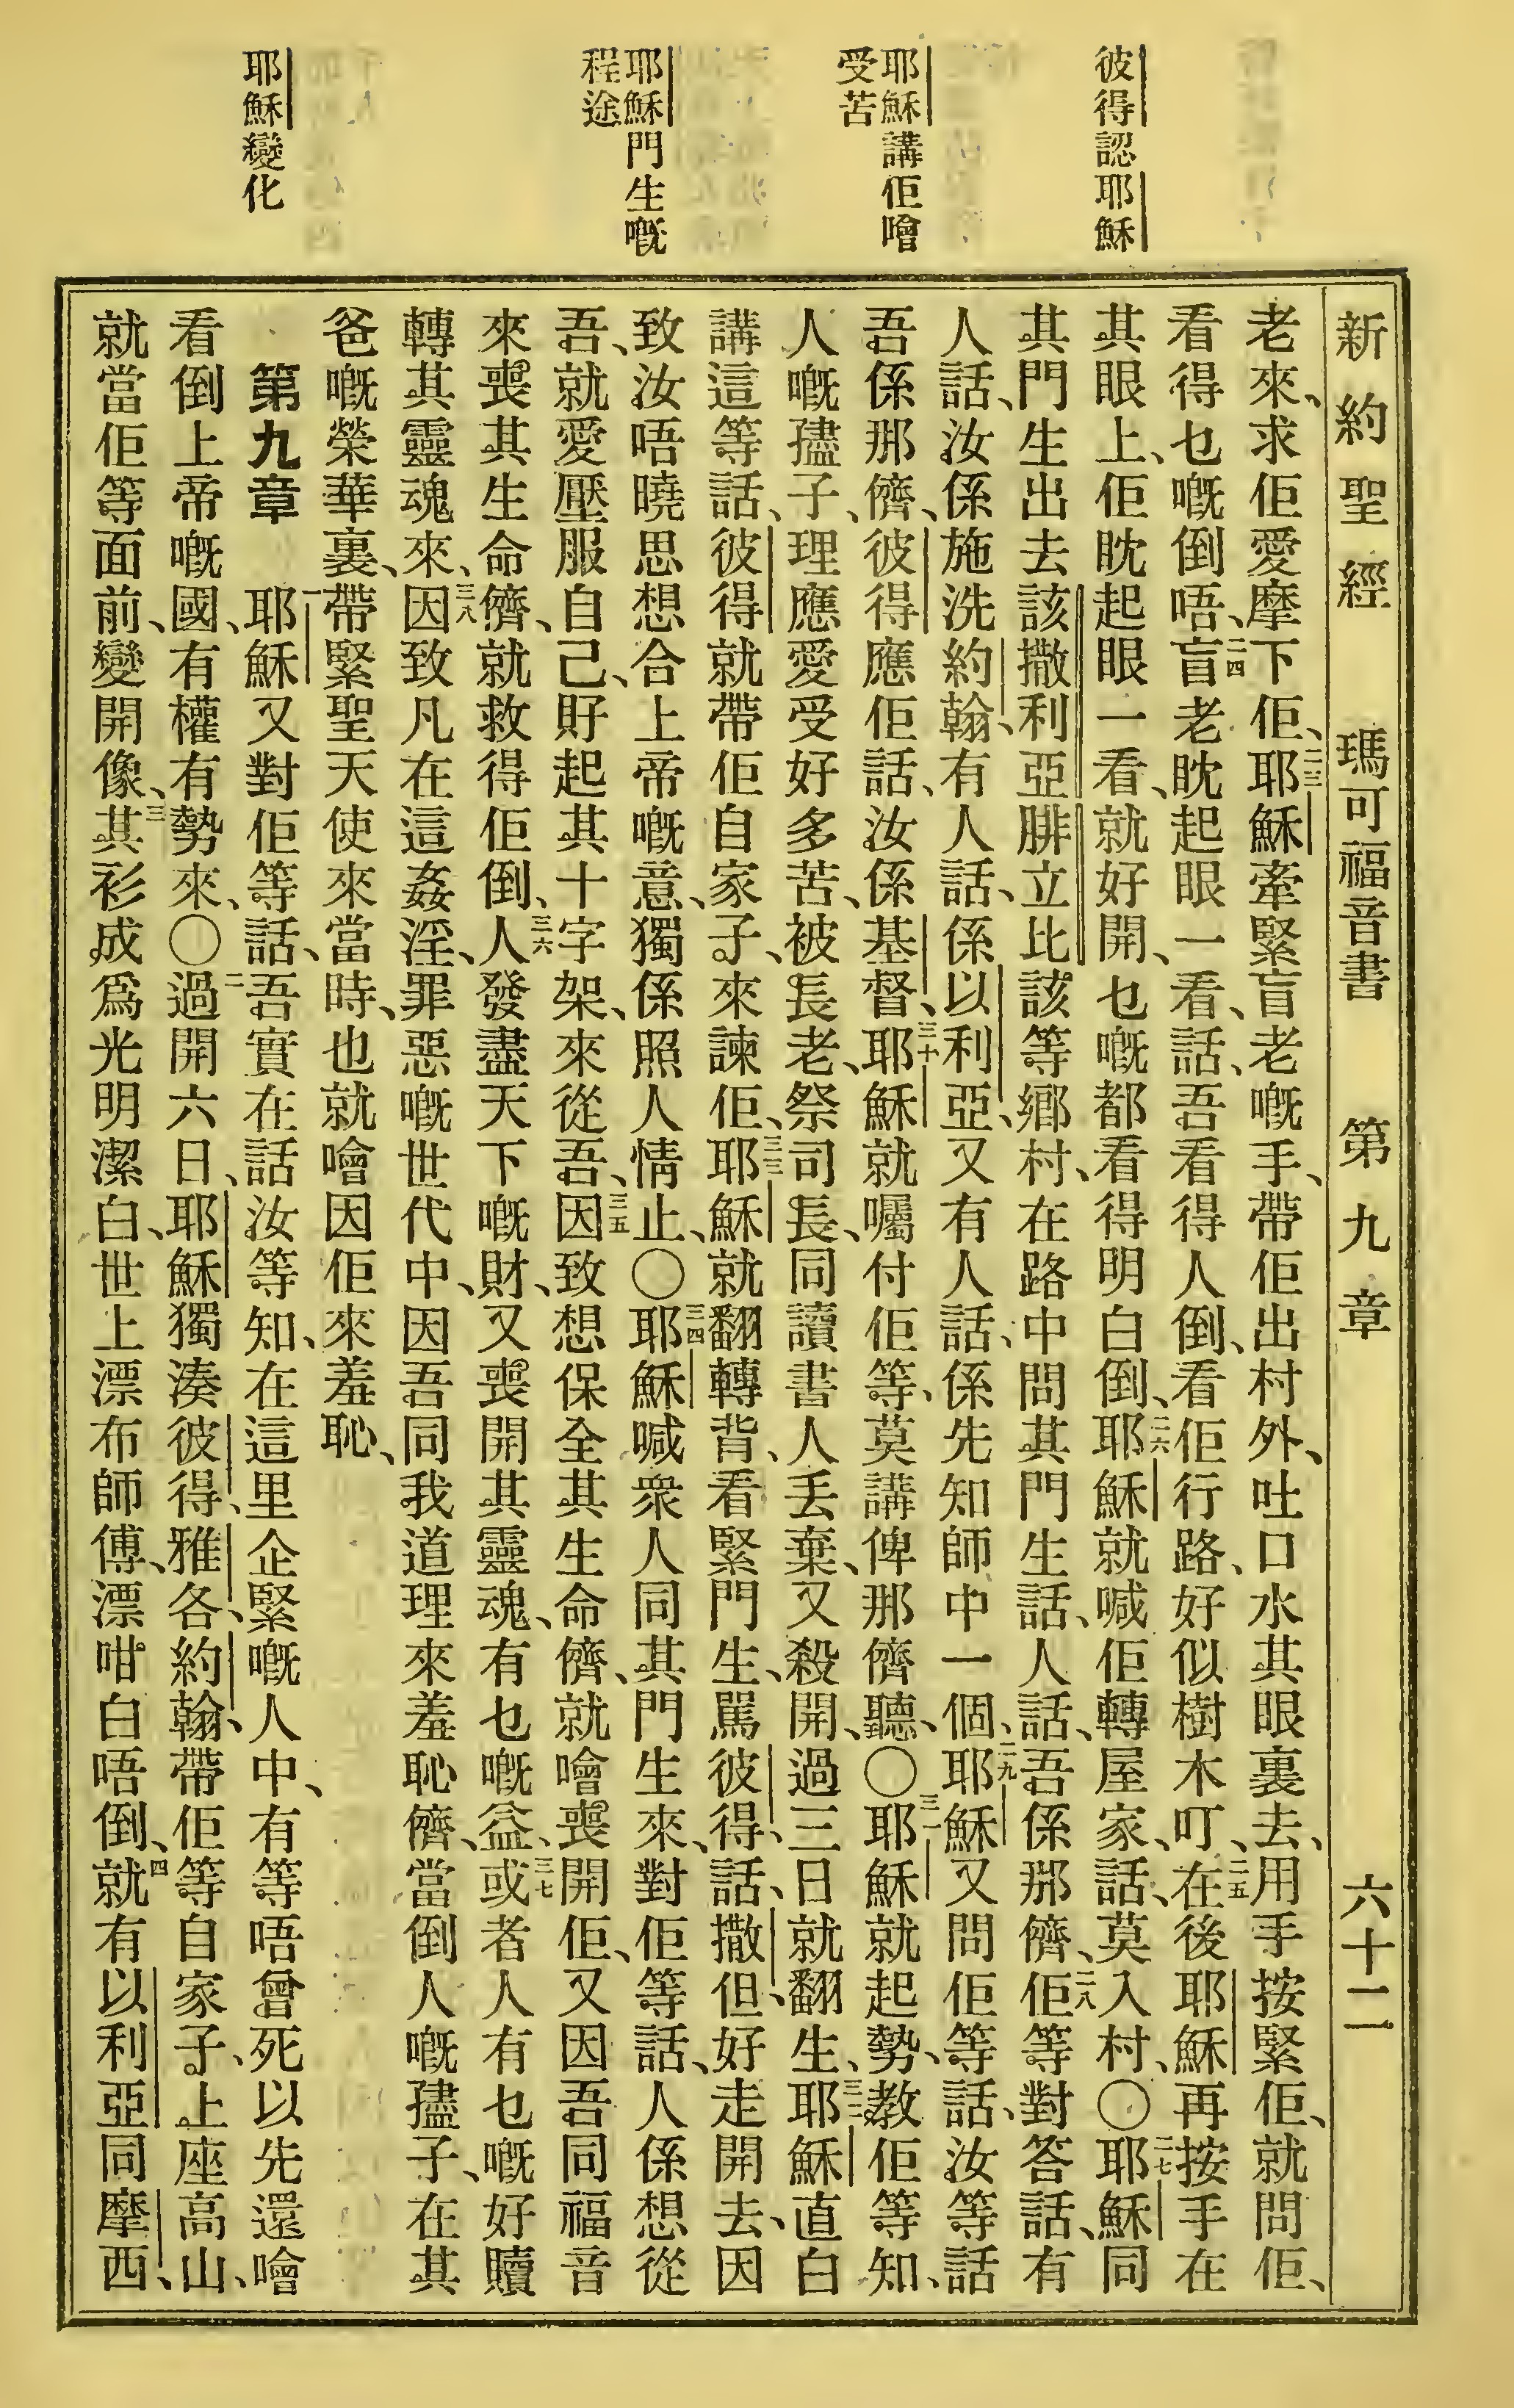 彼得認耶穌
耶穌講佢噲
受苦
耶穌門生嘅
程途
耶穌變化
新約聖經 瑪可福音書 第九章 六十二
老來、求佢愛摩下佢、二三耶穌牽緊盲老嘅手、帶佢出村外、吐口水其眼裏去、用手按緊佢、就問佢、
看得乜嘅倒唔、二四盲老眈起眼一看、話、吾看得人倒、看佢行路、好似樹木叮、二五在後耶穌再按手在
其眼上、佢眈起眼一看、就好開、乜嘅都看得明白倒、二六耶穌就喊佢轉屋家、話、莫入村、〇二七耶穌同
其門生出去該撒利亞腓立比該等鄉村、在路中問其門生話、人話、吾係那儕、二八佢等對答話、有
人話、汝係施洗約翰、有人話、係以利亞、又有人話、係先知師中一個、二九耶穌又問佢等話、汝等話
吾係那儕、彼得應佢話、汝係基督、三十耶穌就囑付佢等、莫講俾那儕聽、〇三一耶穌就起勢、教佢等知、
人嘅孻子、理應愛受好多苦、被長老、祭司長、同讀書人丢棄、又殺開、過三日就翻生、三二耶穌直白
講這等話、彼得就帶佢自家子、來諫佢、三三耶穌就翻轉背、看緊門生、駡彼得、話、撒但、好走開去、因
致汝唔曉思想合上帝嘅意、獨係照人情止、〇三四耶穌喊衆人同其門生來、對佢等話、人係想從
吾、就愛壓服自己、𢪛起其十字架、來從吾、三五因致想保全其生命儕、就噲喪開佢、又因吾同福音
來喪其生命儕、就救得佢倒、三六人發盡天下嘅財、又喪開其靈魂、有乜嘅益、三七或者人有乜嘅好贖
轉其靈魂來、三八因致凡在這姦淫、罪惡嘅世代中、因吾同我道理來羞恥儕、當倒人嘅孻子、在其
爸嘅榮華裏、帶緊聖天使來當時、也就噲因佢來羞恥、
第九章 一耶穌又對佢等話、吾實在話汝等知、在這里企緊嘅人中、有等唔曾死以先還噲
看倒上帝嘅國、有權有勢來、〇二過開六日、耶穌獨湊彼得、雅各、約翰、帶佢等自家子、上座高山、
就當佢等面前、變開像、三其衫成爲光明潔白、世上漂布師傅、漂咁白唔倒、四就有以利亞同摩西、